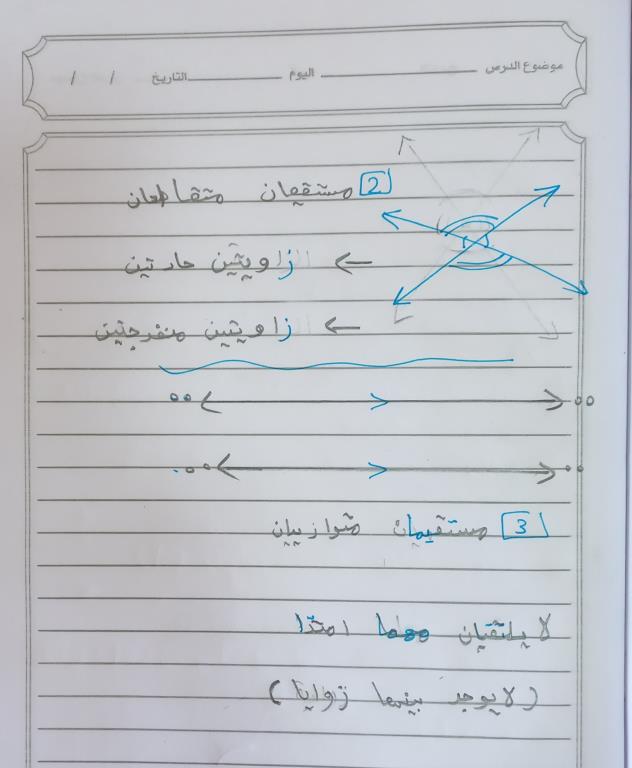 موضوع الدرس اليوم التاريخ / /
2 مستقيمان متقاطعان
← زاويتين حادتين
← زاويتين منفرجتين
3 مستقيمان متوازييان
لا يلتقيان مهما امتدّا
(لا يوجد بينهما زوايا)